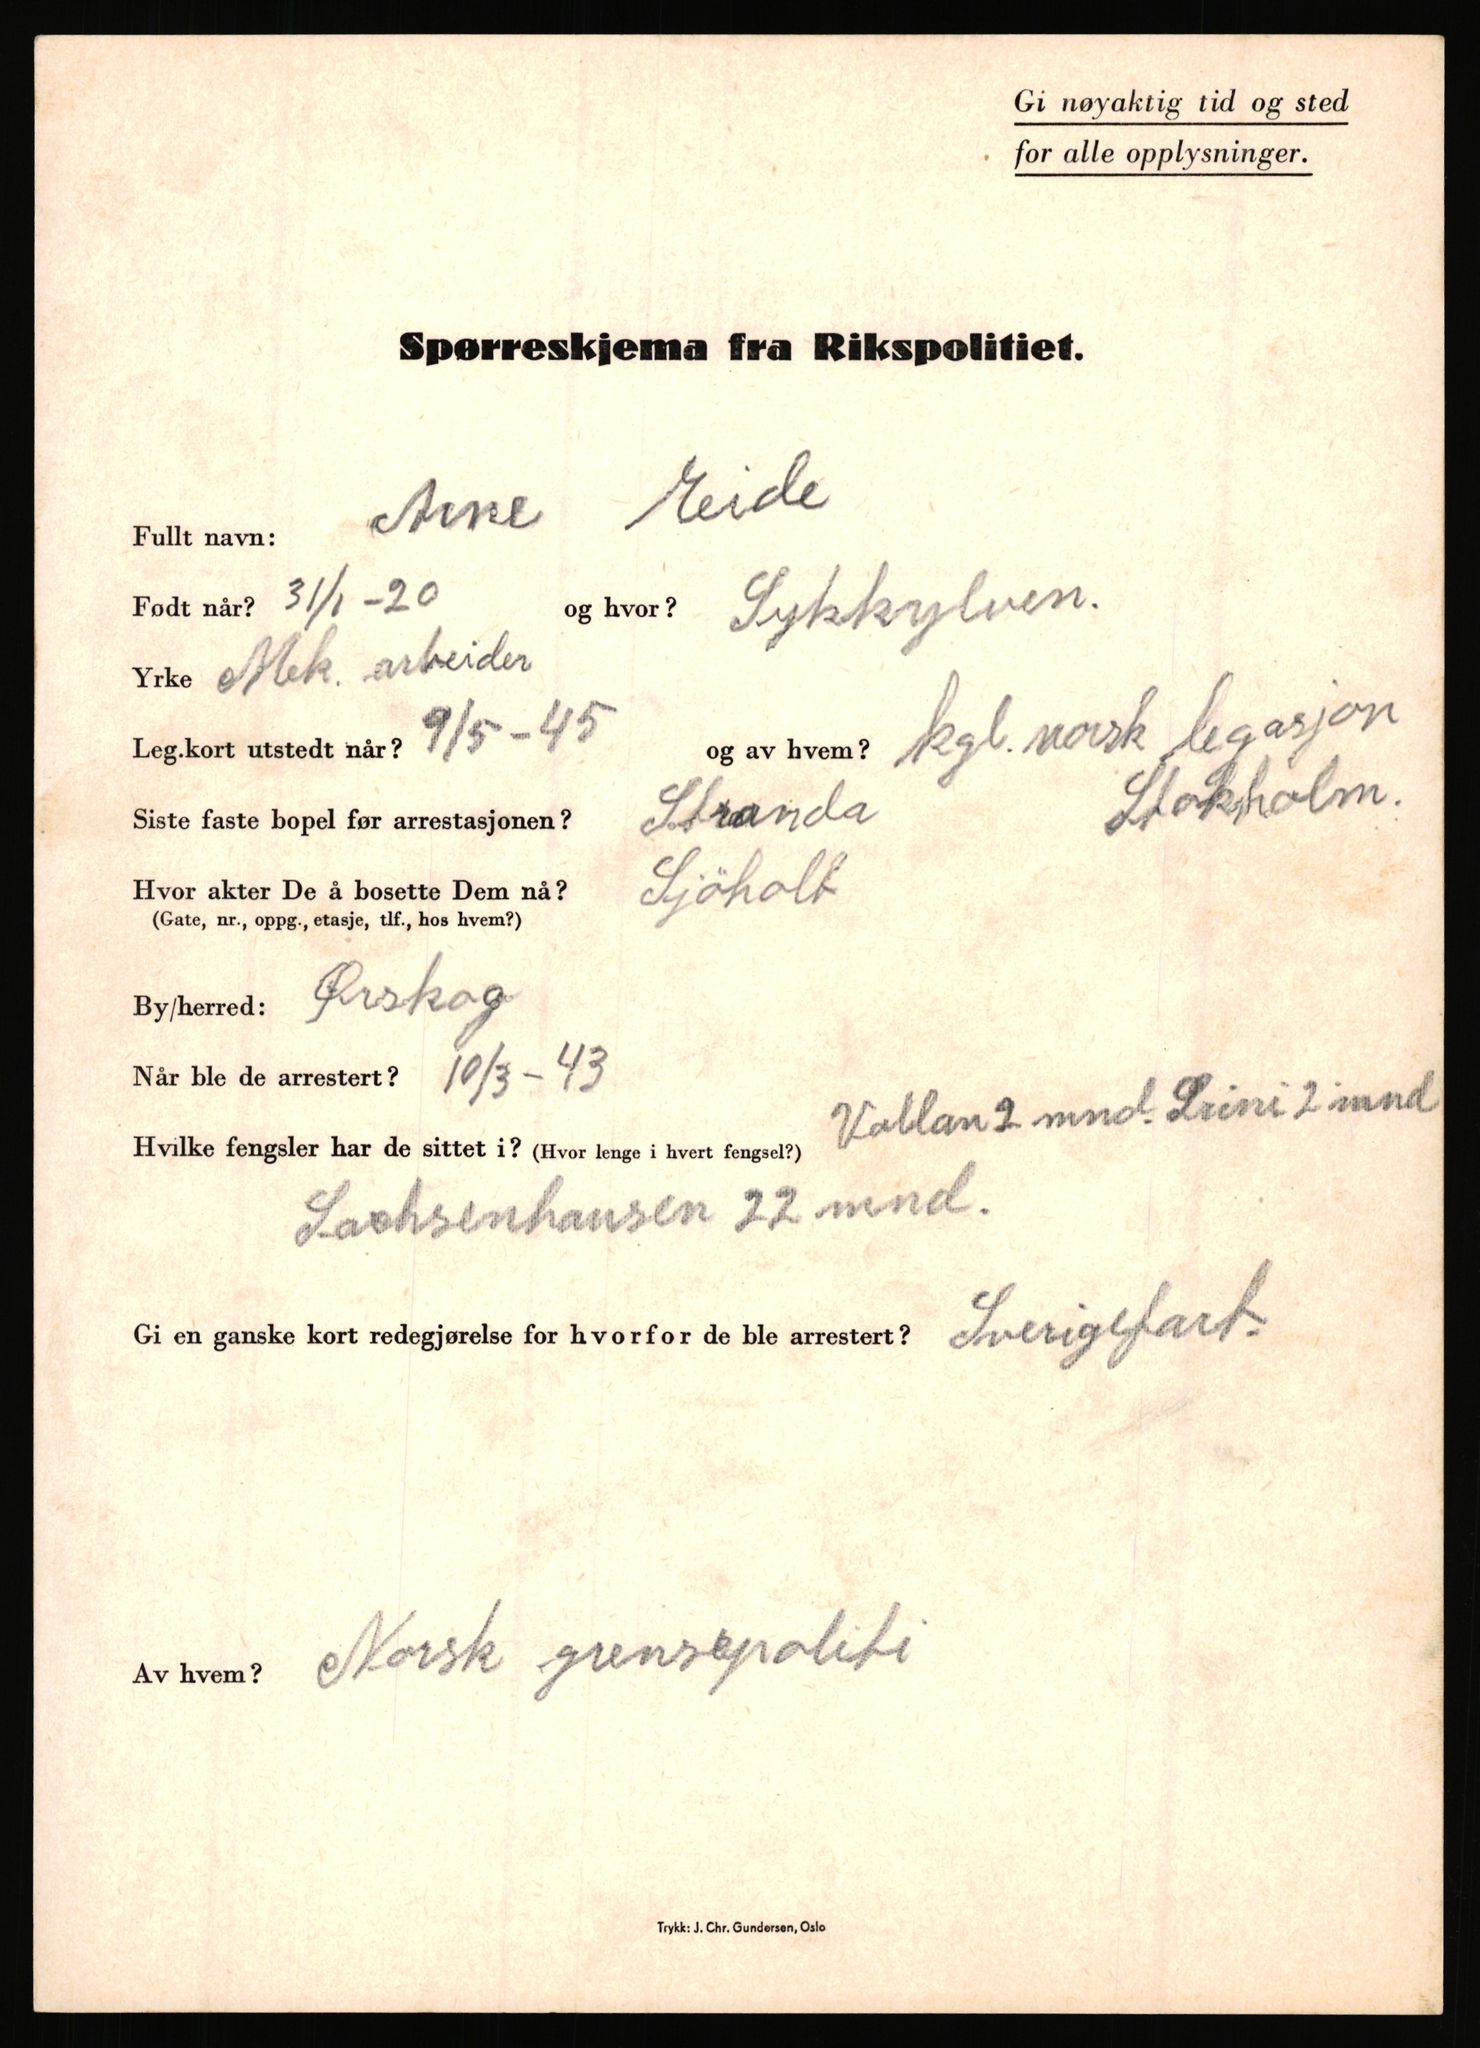 Gi nøyaktig tid og sted
for alle opplysninger.
Spørreskjema fra Rikspolitiet.
Fullt navn: Arne Eide
Født når? 31/1 - 20 og hvor? Sykkylven.
Yrke Mek. arbeider
Leg.kort utstedt når? 9/5 - 45 og av hvem? kgl. norsk legasjon
Siste faste bopel før arrestasjonen? Stranda Stokholm.
Hvor akter De å bosette Dem nå? Sjöholt
(Gate, nr., oppg., etasje, tlf., hos hvem?)
By/herred: Ørskog
Når ble de arrestert? 10/3 - 43
Hvilke fengsler har de sittet i? (Hvor lenge i hvert fengsel?) Vollan 2 mnd. Grini 2 mnd
Sachsenhausen 22 mnd.
Gi en ganske kort redegjørelse for hvorfor de ble arrestert? Sverigefart.
Av hvem? Norsk grensepoliti
Trykk: J. Chr. Gundersen, Oslo